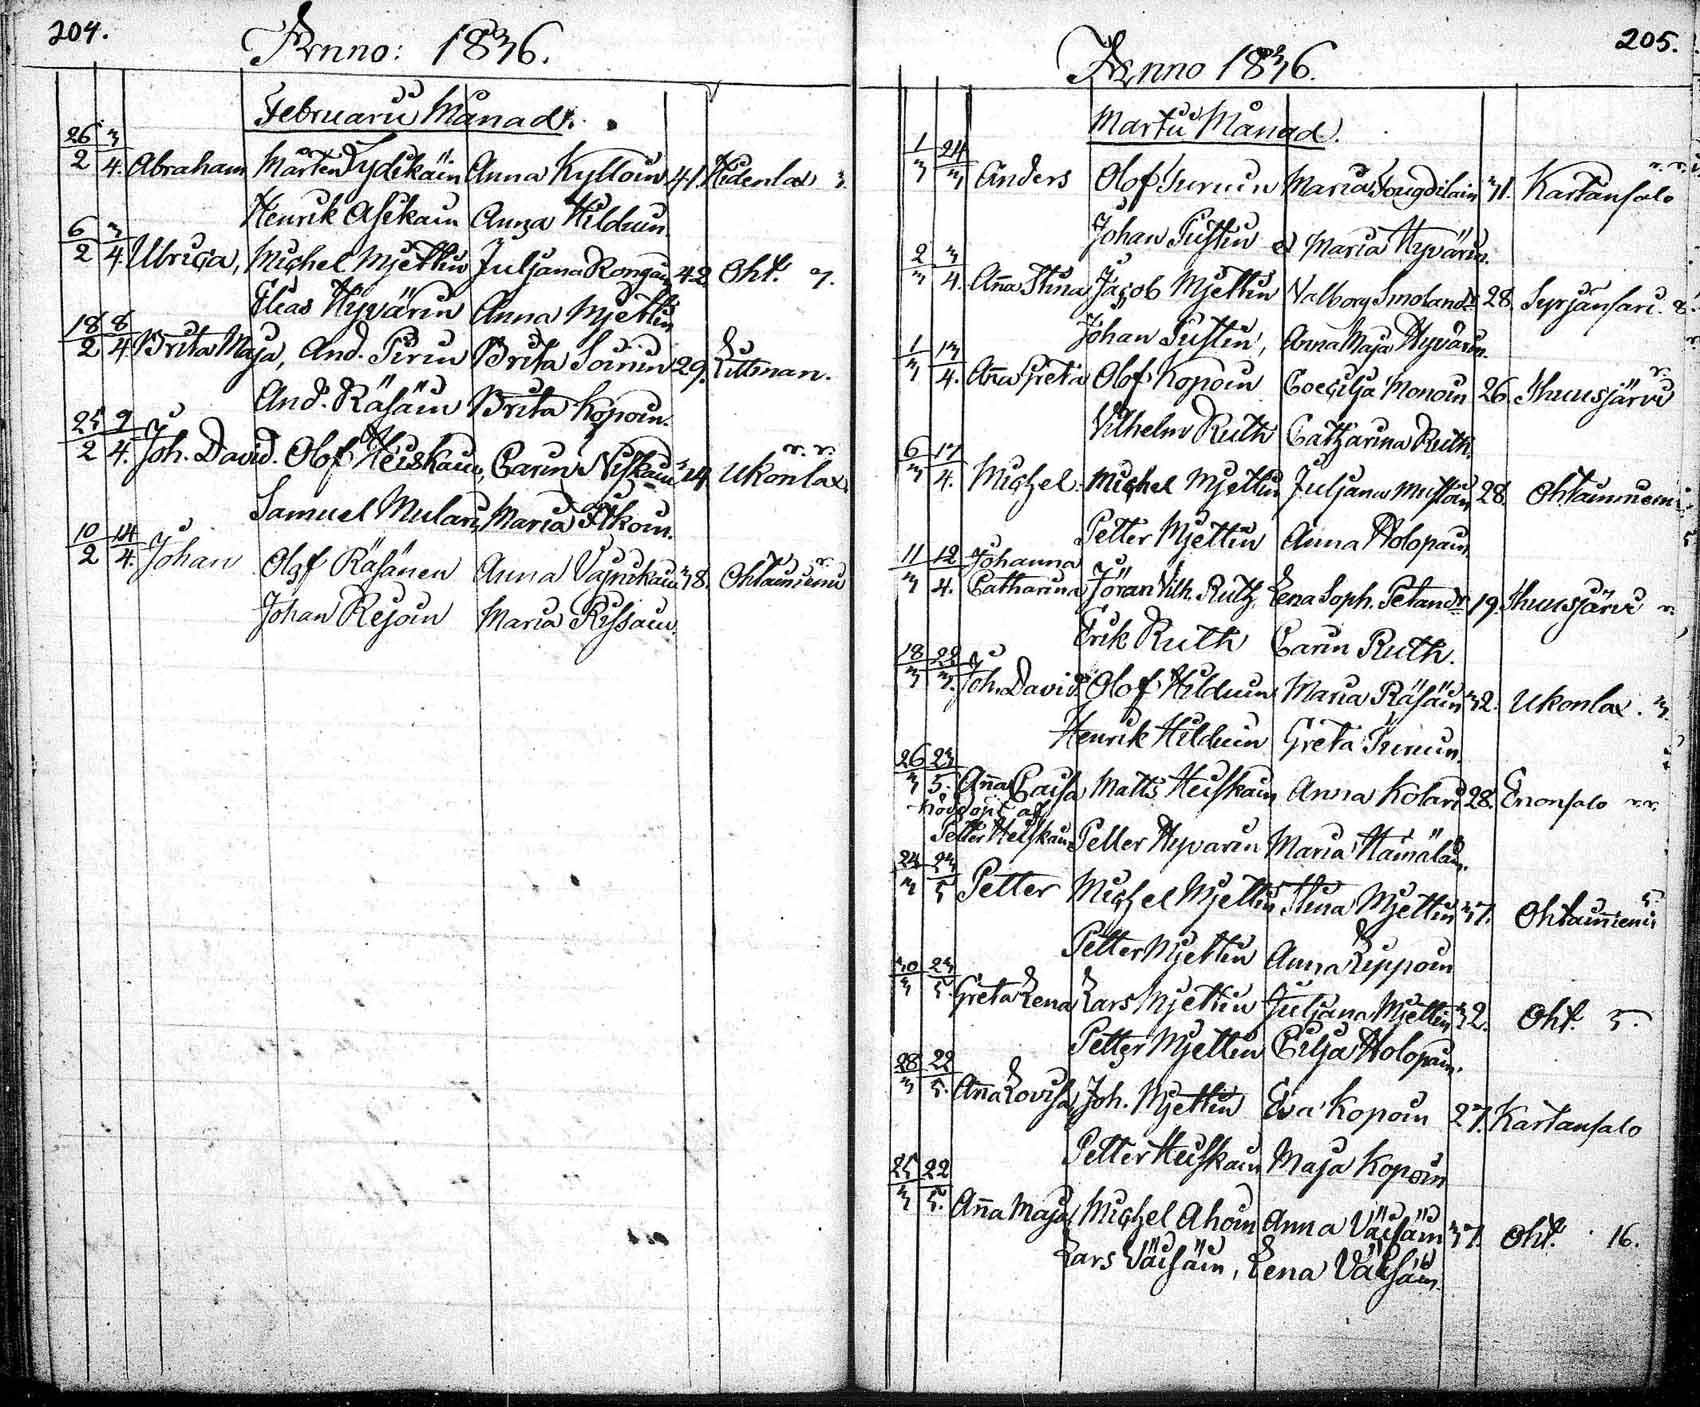 204.
Anno: 1836.
Februarii Månad.
26/2 3/4. Abraham Mårten Lydikäin Anna Kylloin 41. Hidenlax 3.
Henrik Asikain Anna Hilduin
6/2 3/4. Ulrica, Michel Mjettin Juljana Rongäin 42 Oht. 7.
Elias Hyvärin Anna Mjettin
18/2 8/4 Brita Maja, And. Pirin Brita Soinin 29. Littman.
And. Räsäin Brita Kopoin.
25/2 9/4. Joh. David. Olof Heiskain, Carin Niskain 34. Ukonlax
Samuel Mulari, Maria Itkoin.
10/2 14/4. Johan Olof Räsänen Anna Vajnikain 38. Ohtainiemi
Johan Rejoin Maria Kissain.
205.
Anno 1836.
Martii Månad.
1/3 24/3 Anders Olof Turuin Maria 31. Kartansalo
Johan Pustin & Maria Hyvärin.
2/3 3/4. Anna Stina Jacob Mjettin Valborg Smoland 28. Syrjänsari. 8.
Johan Pustin, Anna Maja Hyvärin.
1/3 13/4. Anna Greta Olof Kopoin Coecilja Monoin 26. Ihuusjärvi
Vilhelm Ruth Catharina Ruth.
6/3 17/4. Michel. Michel Mjettin Juljana Mustain 28. Ohtainniemi
Petter Mjettin Anna Holopain
11/3 12/4. Johanna
Catharina Jöran Vilh. Ruth, Lena Soph. Petandr 19. Ihuusjärvi
Erik Ruth Carin Ruth.
18/3 28/3. Joh. David Olof Hilduin Maria Räsäin 32. Ukonlax. 3.
Henrik Hilduin Greta Turuin.
26/3 23/5. Anna Caisa Matts Heiskain Anna Kolari 28. Enonsalo
Nöddöpt af
Petter Heiskain Petter Hyvarin Maria Hämäläin.
24/3 23/5 Petter Michel Mjettin Stina Mjettin 37. Ohtainniemi 5.
Petter Mjettin Anna Leppoin
30/3 23/5. Greta Lena Lars Mjettin Juljana Mjettin 32. Oht. 5.
Petter Mjettin Cilja Holopain.
28/3 22/5. Anna Lovisa, Joh. Mjettin Eva Kopoin 27. Kartansalo
Petter Heiskain Maja Kopoin
25/3 22/5. Anna Maja Michel Ahoin Anna Väisäin 37. Oht. 16.
Lars Väisäin, Lena Väisäin.